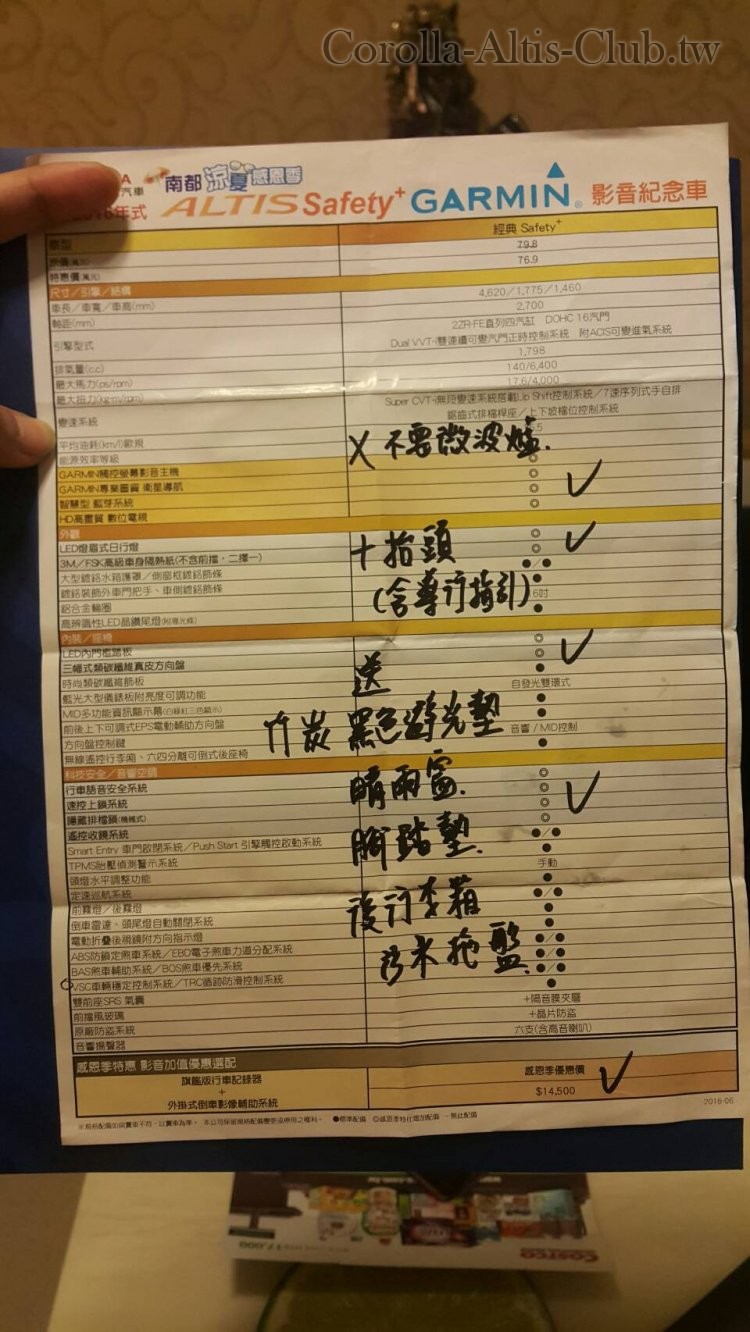 Corolla-Altis-Club.tw
南都 涼夏感恩季
汽車
年式 ALTIS Safety+ GARMIN® 影音紀念車
經典 Safety+
79.8
特惠價(萬元) 76.9
尺寸／引擎／結構
車長／車寬／車高(mm) 4,620／1,775／1,460
軸距(mm) 2,700
引擎型式 2ZR-FE直列四汽缸 DOHC 16汽門
Dual VVT-i雙連續可變汽門正時控制系統 附ACIS可變進氣系統
排氣量(c.c) 1,798
最大馬力(ps/rpm) 140/6,400
最大扭力(kg-m/rpm) 17.6/4,000
變速系統 Super CVT-i無段變速系統搭載Up Shift控制系統／7速序列式手自排
鋸齒式排檔桿座／上下坡檔位控制系統
平均油耗(km/l)歐規
能源效率等級
X 不要微波爐.
GARMIN觸控螢幕影音主機 ◎
GARMIN專業圖資 衛星導航 ◎ ✓
智慧型 藍芽系統 ◎
HD高畫質 數位電視 ◎
外觀
LED燈眉式日行燈 ◎ ✓
3M／FSK高級車身隔熱紙(不含前擋，二擇一) ◎
＋抬頭
大型鍍鉻水箱護罩／側窗框鍍鉻飾條 ●／●
鍍鉻裝飾外車門把手、車側鍍鉻飾條 ●
(含導行指引)
鋁合金輪圈 6吋
高辨識性LED晶鑽尾燈(附導光條) ●
內裝／座椅
LED內門檻踏板 ◎ ✓
三幅式類碳纖維真皮方向盤 ◎
時尚類碳纖維飾板 ●
送
藍光大型儀錶板附亮度可調功能 自發光雙環式
MID多功能資訊顯示幕(白綠紅三色顯示) ●
前後上下可調式EPS電動輔助方向盤 ●
竹炭 黑色避光墊
方向盤控制鍵 音響／MID控制
無線遙控行李廂、六四分離可倒式後座椅 ●
科技安全／音響空調
行車語音安全系統 ◎
速控上鎖系統 ◎ ✓
晴雨窗.
隱藏排檔鎖(機械式) ◎
遙控收鏡系統 ◎
Smart Entry 車門啟閉系統／Push Start 引擎觸控啟動系統 ●／●
腳踏墊.
TPMS胎壓偵測警示系統 ●
頭燈水平調整功能 手動
定速巡航系統 ●
前霧燈／後霧燈 ●／●
後行李箱
倒車雷達、頭尾燈自動關閉系統 ●
電動折疊後視鏡附方向指示燈 ●
ABS防鎖定煞車系統／EBD電子煞車力道分配系統 ●／●
防水拖盤.
BAS煞車輔助系統／BOS煞車優先系統 ●／●
VSC車輛穩定控制系統／TRC循跡防滑控制系統 ●／●
雙前座SRS 氣囊 ●
前擋風玻璃 +隔音膜夾層
原廠防盜系統 +晶片防盜
音響揚聲器 六支(含高音喇叭)
感恩季特惠 影音加值優惠選配 感恩季優惠價
旗艦版行車記錄器
+
外掛式倒車影像輔助系統 $14,500 ✓
※規格配備如與實車不符，以實車為準。 本公司保留規格配備變更或停用之權利。 ●標準配備 ◎感恩季特仕增加配備 －無此配備 2016-06
COSTCO